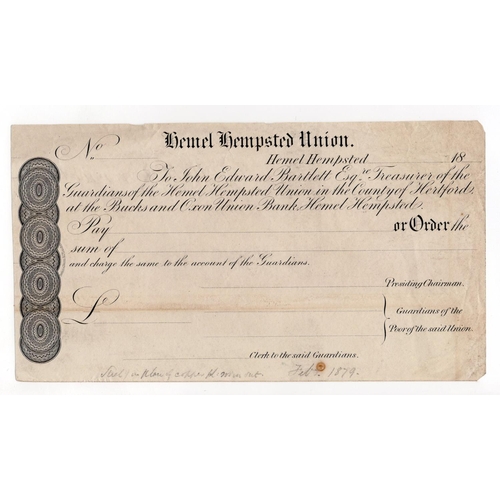 Hemel Hempsted Union.
No
Hemel Hempsted 18
To John Edward Bartlett Esqre. Treasurer of the
Guardians of the Hemel Hempsted Union in the County of Hertford
at the Bucks and Oxon Union Bank, Hemel Hempsted.
Pay or Order the
sum of
and charge the same to the account of the Guardians.
Presiding Chairman.
£
Guardians of the
Poor of the said Union
Clerk to the said Guardians.
of copper Feb 1879.